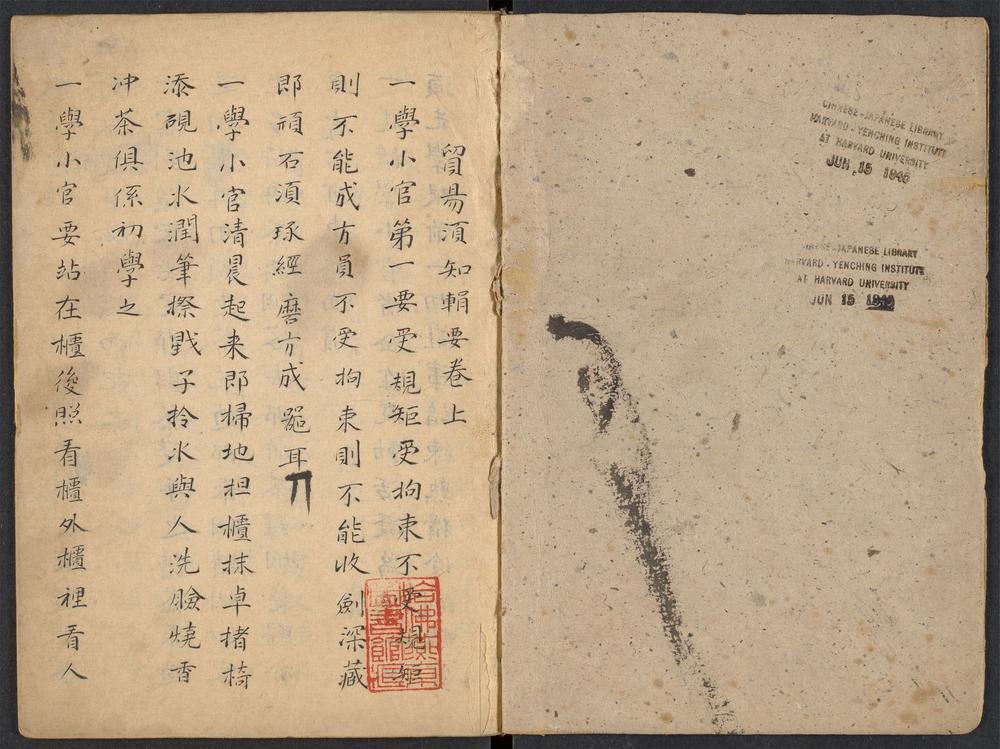 CHINESE-JAPANESE LIBRARY
HARVARD-YENCHING INSTITUTE
AT HARVARD UNIVERSITY
JUN 15 1940
JAPANESE LIBRARY
HARVARD-YENCHING INSTITUTE
AT HARVARD UNIVERSITY
JUN 15
貿易須知輯要卷上
一學小官第一要受規矩受拘束不受規矩
則不能成方員不受拘束則不能收劍深藏
即頑石須琢經磨方成噐耳
一學小官清晨起来即掃地担櫃抹卓揩椅
添硯池水潤筆擦戥子拎水與人洗臉燒香
冲茶俱係初學之
一學小官要站在櫃後照看櫃外櫃裡看人